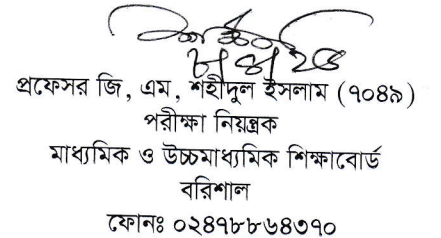 প্রফেসর জি, এম, শহীদুল ইসলাম (৭০৪৯)
পরীক্ষা নিয়ন্ত্রক
মাধ্যমিক ও উচ্চমাধ্যমিক শিক্ষাবোর্ড
বরিশাল
ফোনঃ ০২৪৭৮৮৬৪৩৭০